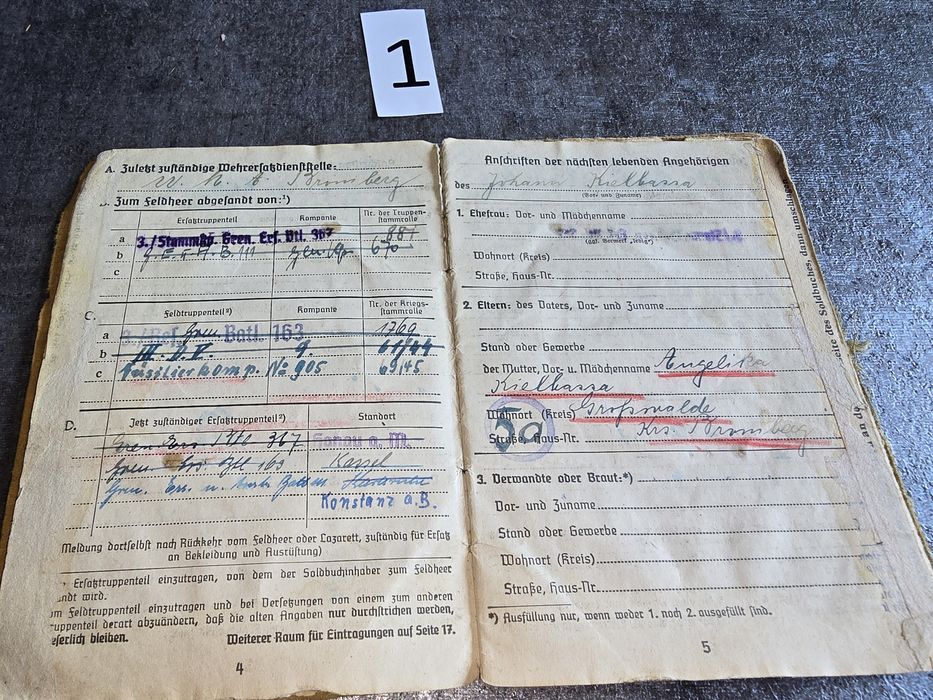 1
A. Zuletzt zuständige Wehrersatzdienststelle:
Bromberg
Zum Feldheer abgesandt von:¹)
Ersatztruppenteil Kompanie Nr. der Truppenstammrolle
a 3./Stammkp. Gren. Ers. Btl. 367 881
b 670
c
C. Feldtruppenteil²) Kompanie Nr. der Kriegsstammrolle
a Gren Batl. 163 1769
b 9. 61/44
c Füsilierkomp. No 905 69/45
D. Jetzt zuständiger Ersatztruppenteil²) Standort
Gren Ers 367 Hanau a. M.
Gren. Ers. Btl 163 Kassel
Gren. Ers. u.
Konstanz a. B.
Meldung dortselbst nach Rückkehr vom Feldheer oder Lazarett, zuständig für Ersatz
an Bekleidung und Ausrüstung)
Ersatztruppenteil einzutragen, von dem der Soldbuchinhaber zum Feldheer
wird.
Feldtruppenteil einzutragen und bei Versetzungen von einem zum anderen
derart abzuändern, daß die alten Angaben nur durchstrichen werden,
bleiben. Weiterer Raum für Eintragungen auf Seite 17.
4
Anschriften der nächsten lebenden Angehörigen
des Johann Kielbassa
(Vor- und Zuname)
1. Ehefrau: Vor- und Mädchenname
(ggf. Vermerk „ledig“)
Wohnort (Kreis)
Straße, Haus-Nr.
2. Eltern: des Vaters, Vor- und Zuname
Stand oder Gewerbe
der Mutter, Vor- u. Mädchenname Angelika
Kielbassa
Wohnort (Kreis) Großwalde
Straße, Haus-Nr. Krs. Bromberg
5a
3. Verwandte oder Braut:*)
Vor- und Zuname
Stand oder Gewerbe
Wohnort (Kreis)
Straße, Haus-Nr.
*) Ausfüllung nur, wenn weder 1. noch 2. ausgefüllt sind.
5
des Soldbuches, dann umschlagen